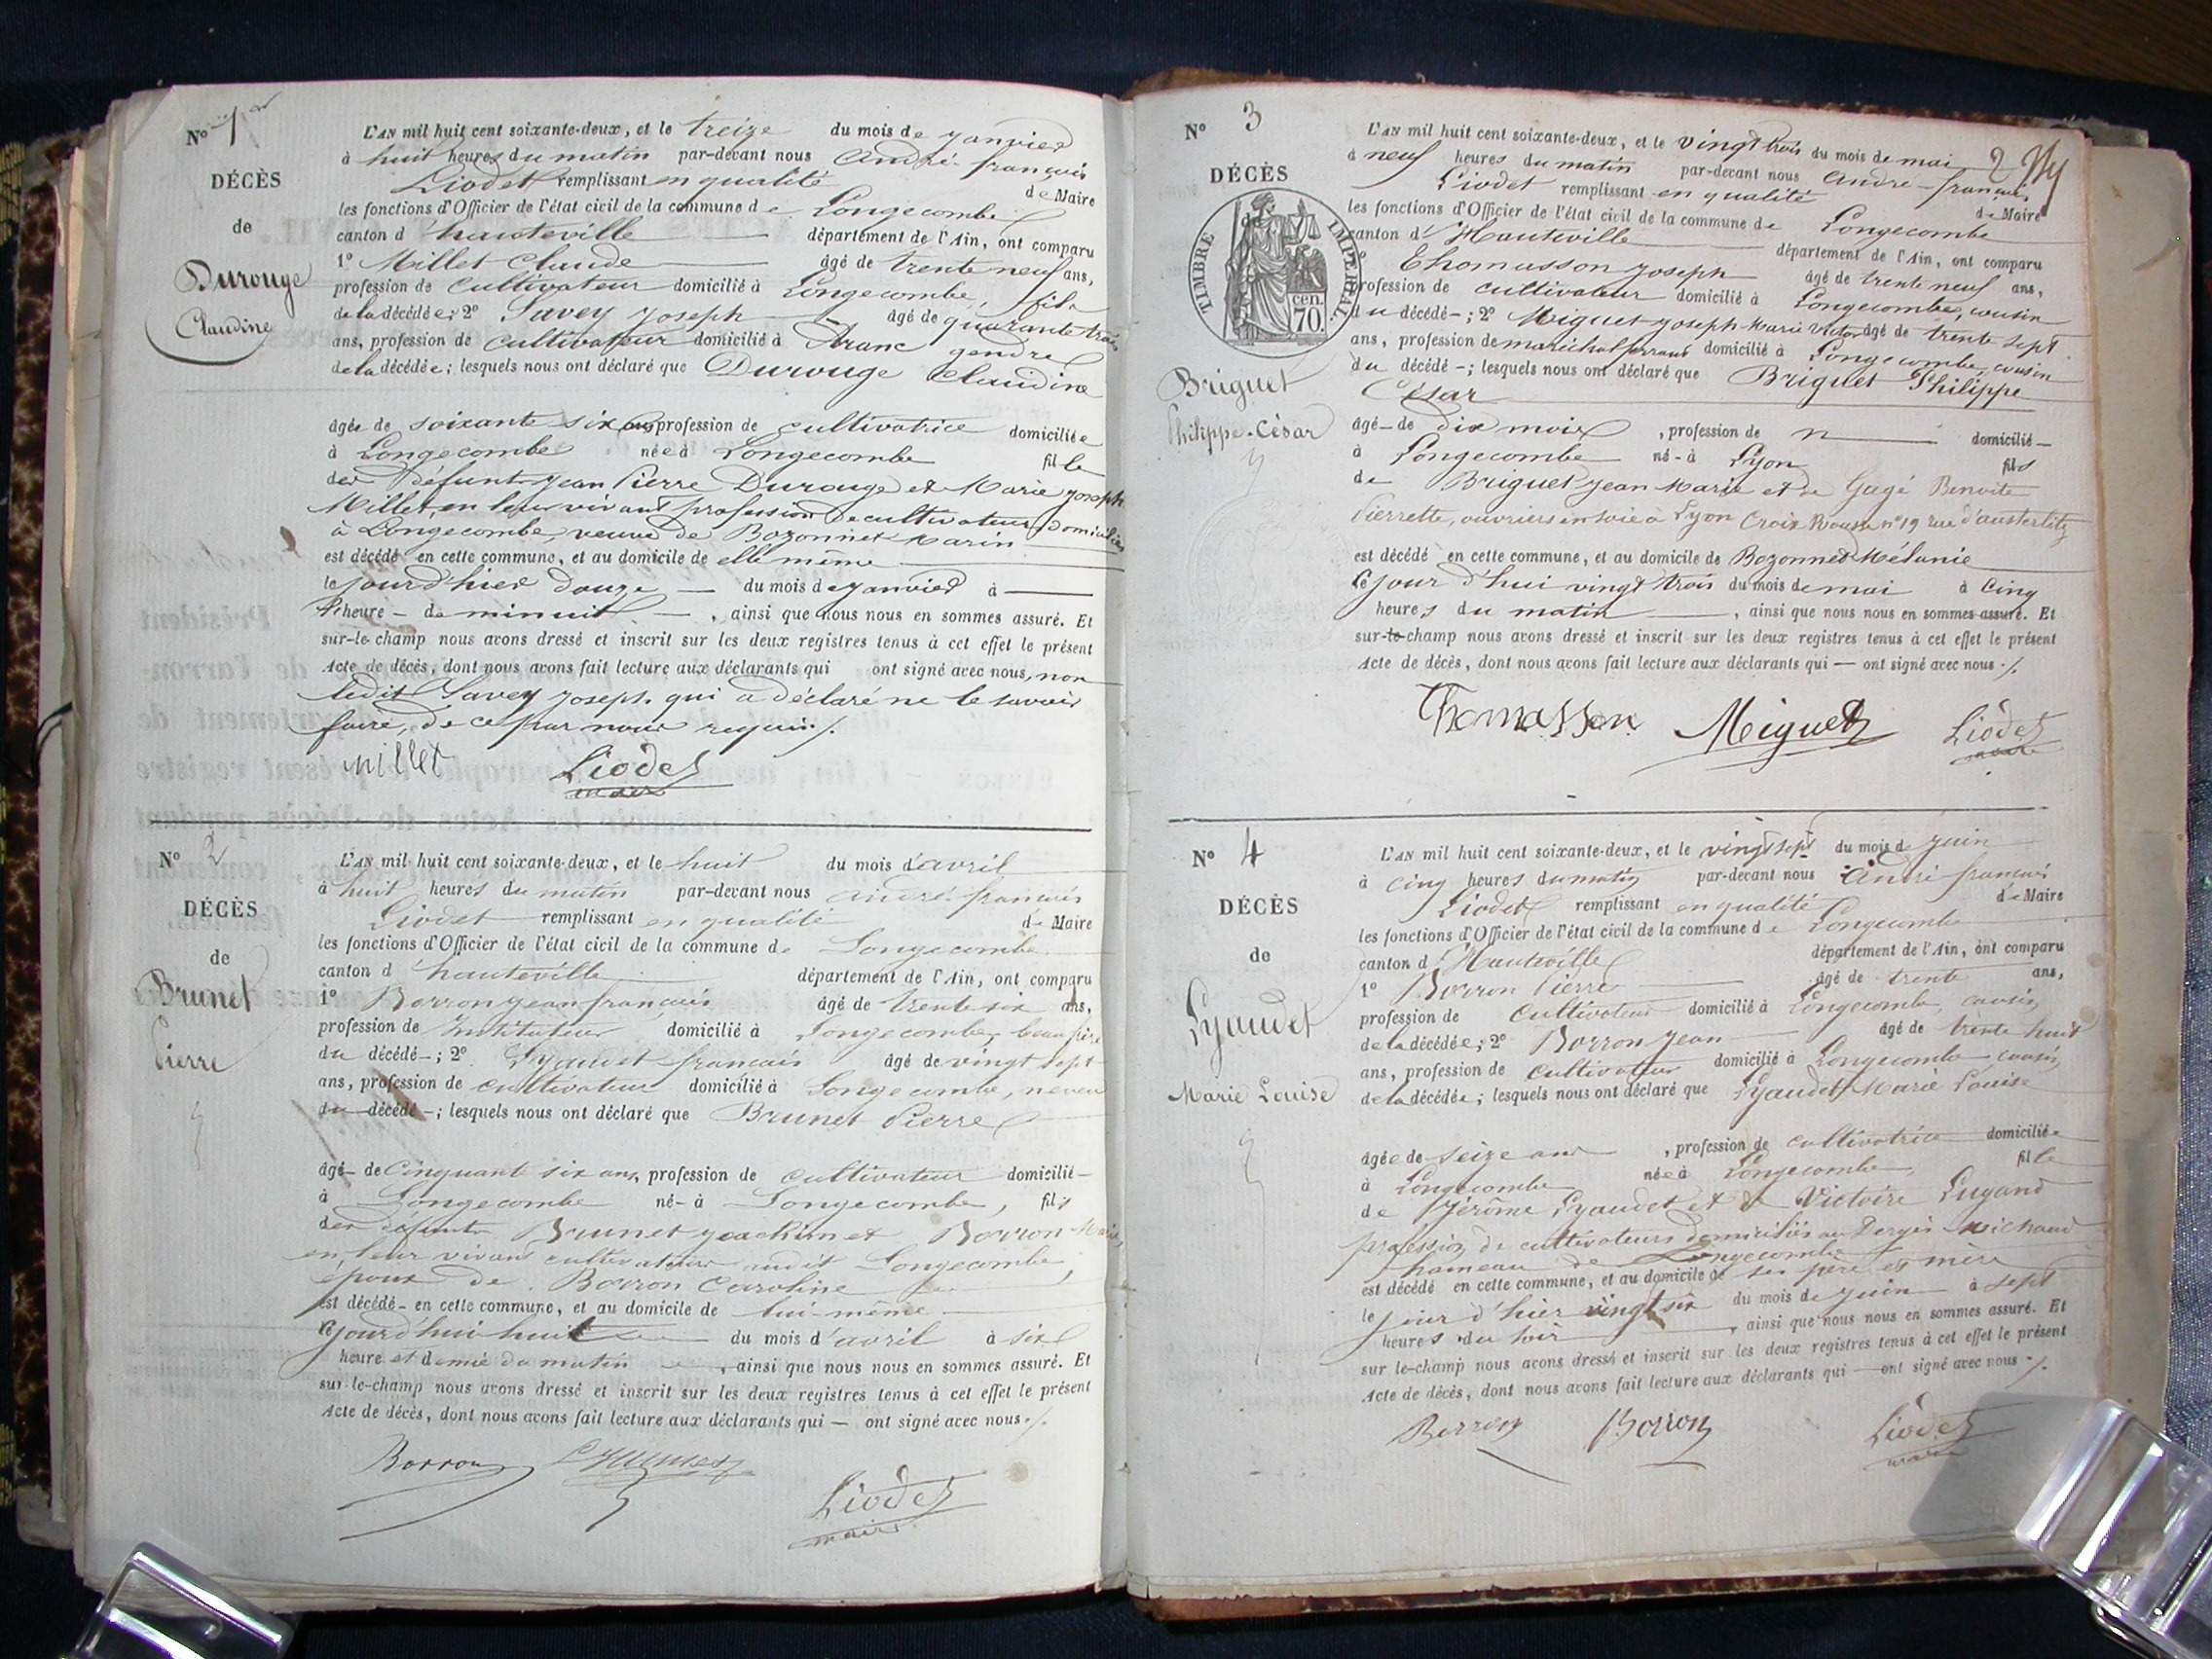 N° 1er
DÉCÈS
de
Durouge
Claudine
L'AN mil huit cent soixante-deux, et le treize du mois de janvier
à huit heures du matin par-devant nous André françois
Liodet remplissant en qualité de Maire
les fonctions d'Officier de l'état civil de la commune de Longecombe
canton d'hauteville département de l'Ain, ont comparu
1° Millet Claude âgé de trente neuf ans,
profession de Cultivateur domicilié à Longecombe, fils
de la décédée; 2° Savey joseph âgé de quarante trois
ans, profession de cultivateur domicilié à Aranc gendre
de la décédée; lesquels nous ont déclaré que Durouge Claudine
âgée de soixante six ans profession de cultivatrice domiciliée
à Longecombe née à Longecombe fille
des défunts jean Pierre Durouge et Marie joseph
Millet, en leur vivant profession de cultivateurs domiciliés
à Longecombe, veuve de Bozonnet Marin
est décédé en cette commune, et au domicile de elle même
le jourd'hier douze du mois de janvier à
l'heure de minuit, ainsi que nous nous en sommes assuré. Et
sur-le-champ nous avons dressé et inscrit sur les deux registres tenus à cet effet le présent
Acte de décès, dont nous avons fait lecture aux déclarants qui ont signé avec nous, non
ledit Savey joseph qui a déclaré ne le savoir
faire, de ce par nous requis ./.
Millet Liodet
maire
N° 2
DÉCÈS
de
Brunet
Pierre
L'AN mil huit cent soixante-deux, et le huit du mois d'avril
à huit heures du matin par-devant nous André françois
Liodet remplissant en qualité de Maire
les fonctions d'Officier de l'état civil de la commune de Longecombe
canton d'hauteville département de l'Ain, ont comparu
1° Borron jean françois âgé de trente six ans,
profession de Instituteur domicilié à Longecombe, beau frère
du décédé; 2° Lyaudet françois âgé de vingt sept
ans, profession de cultivateur domicilié à Longecombe, neveu
du décédé; lesquels nous ont déclaré que Brunet Pierre
âgé de Cinquante six ans, profession de cultivateur domicilié
à Longecombe né à Longecombe, fils
des défunts Brunet joachim et Borron Marie
en leur vivant cultivateurs audit Longecombe,
époux de Borron Caroline
est décédé en cette commune, et au domicile de lui-même
Cejourd'hui huit du mois d'avril à six
heure et demie du matin, ainsi que nous nous en sommes assuré. Et
sur-le-champ nous avons dressé et inscrit sur les deux registres tenus à cet effet le présent
Acte de décès, dont nous avons fait lecture aux déclarants qui — ont signé avec nous ./.
Borron Lyaudet
Liodet
maire
2
N° 3
DÉCÈS
de
TIMBRE IMPÉRIAL
cen.
70.
Briguet
Philippe-César
L'AN mil huit cent soixante-deux, et le vingt trois du mois de mai
à neuf heures du matin par-devant nous André-françois
Liodet remplissant en qualité de Maire
les fonctions d'Officier de l'état civil de la commune de Longecombe
canton d'Hauteville département de l'Ain, ont comparu
Thomasson joseph âgé de trente neuf ans,
profession de cultivateur domicilié à Longecombe, cousin
du décédé; 2° Miguet joseph-Marie Victor âgé de trente sept
ans, profession de maréchal ferrant domicilié à Longecombe, cousin
du décédé; lesquels nous ont déclaré que Briguet Philippe
César
âgé de dix mois, profession de n domicilié
à Longecombe né à Lyon fils
de Briguet jean Marie et de Gagé Benoite
Pierrette, ouvriers en soie à Lyon Croix Rousse n° 19 rue d'austerlitz
est décédé en cette commune, et au domicile de Bozonnet Mélanie
Cejour d'hui vingt trois du mois de mai à cinq
heures du matin, ainsi que nous nous en sommes assuré. Et
sur-le-champ nous avons dressé et inscrit sur les deux registres tenus à cet effet le présent
Acte de décès, dont nous avons fait lecture aux déclarants qui — ont signé avec nous ./.
Thomasson Miguet Liodet
maire
N° 4
DÉCÈS
de
Lyaudet
Marie Louise
L'AN mil huit cent soixante-deux, et le vingt sept du mois de juin
à cinq heures du matin par-devant nous André françois
Liodet remplissant en qualité de Maire
les fonctions d'Officier de l'état civil de la commune de Longecombe
canton d'Hauteville département de l'Ain, ont comparu
1° Borron Pierre âgé de trente ans,
profession de Cultivateur domicilié à Longecombe, cousin
de la décédée; 2° Borron jean âgé de trente huit
ans, profession de cultivateur domicilié à Longecombe cousin
de la décédée; lesquels nous ont déclaré que Lyaudet Marie Louise
âgée de seize ans, profession de cultivatrice domiciliée
à Longecombe née à Longecombe, fille
de Jérôme Lyaudet et de Victoire Lugand
profession de cultivateurs domiciliés au Dergis Michaud
hameau de Longecombe
est décédé en cette commune, et au domicile de ses père et mère
le jour d'hier vingt six du mois de juin à sept
heures du soir, ainsi que nous nous en sommes assuré. Et
sur le-champ nous avons dressé et inscrit sur les deux registres tenus à cet effet le présent
Acte de décès, dont nous avons fait lecture aux déclarants qui — ont signé avec nous ./.
Borron Borron Liodet
maire